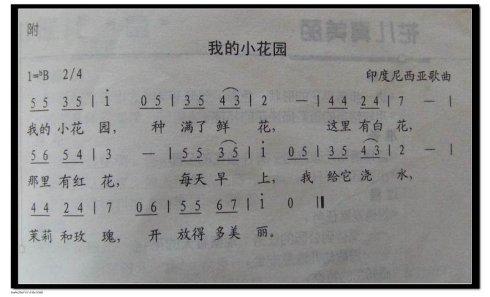 附
我的小花园
1=♭B 2/4 印度尼西亚歌曲
5 5 3 5 | i 0 5 | 3 5 4 3 | 2 — | 4 4 2 4 | 7 — |
我的 小花 园, 种 满了 鲜 花, 这里 有白 花,
5 6 5 4 | 3 — | 5 5 3 5 | i 0 5 | 3 5 4 3 | 2 — |
那里 有红 花, 每天 早 上, 我 给它 浇 水,
4 4 2 4 | 7 0 6 | 5 5 6 7 | i 0 ‖
茉莉 和玫 瑰, 开 放得 多美 丽。